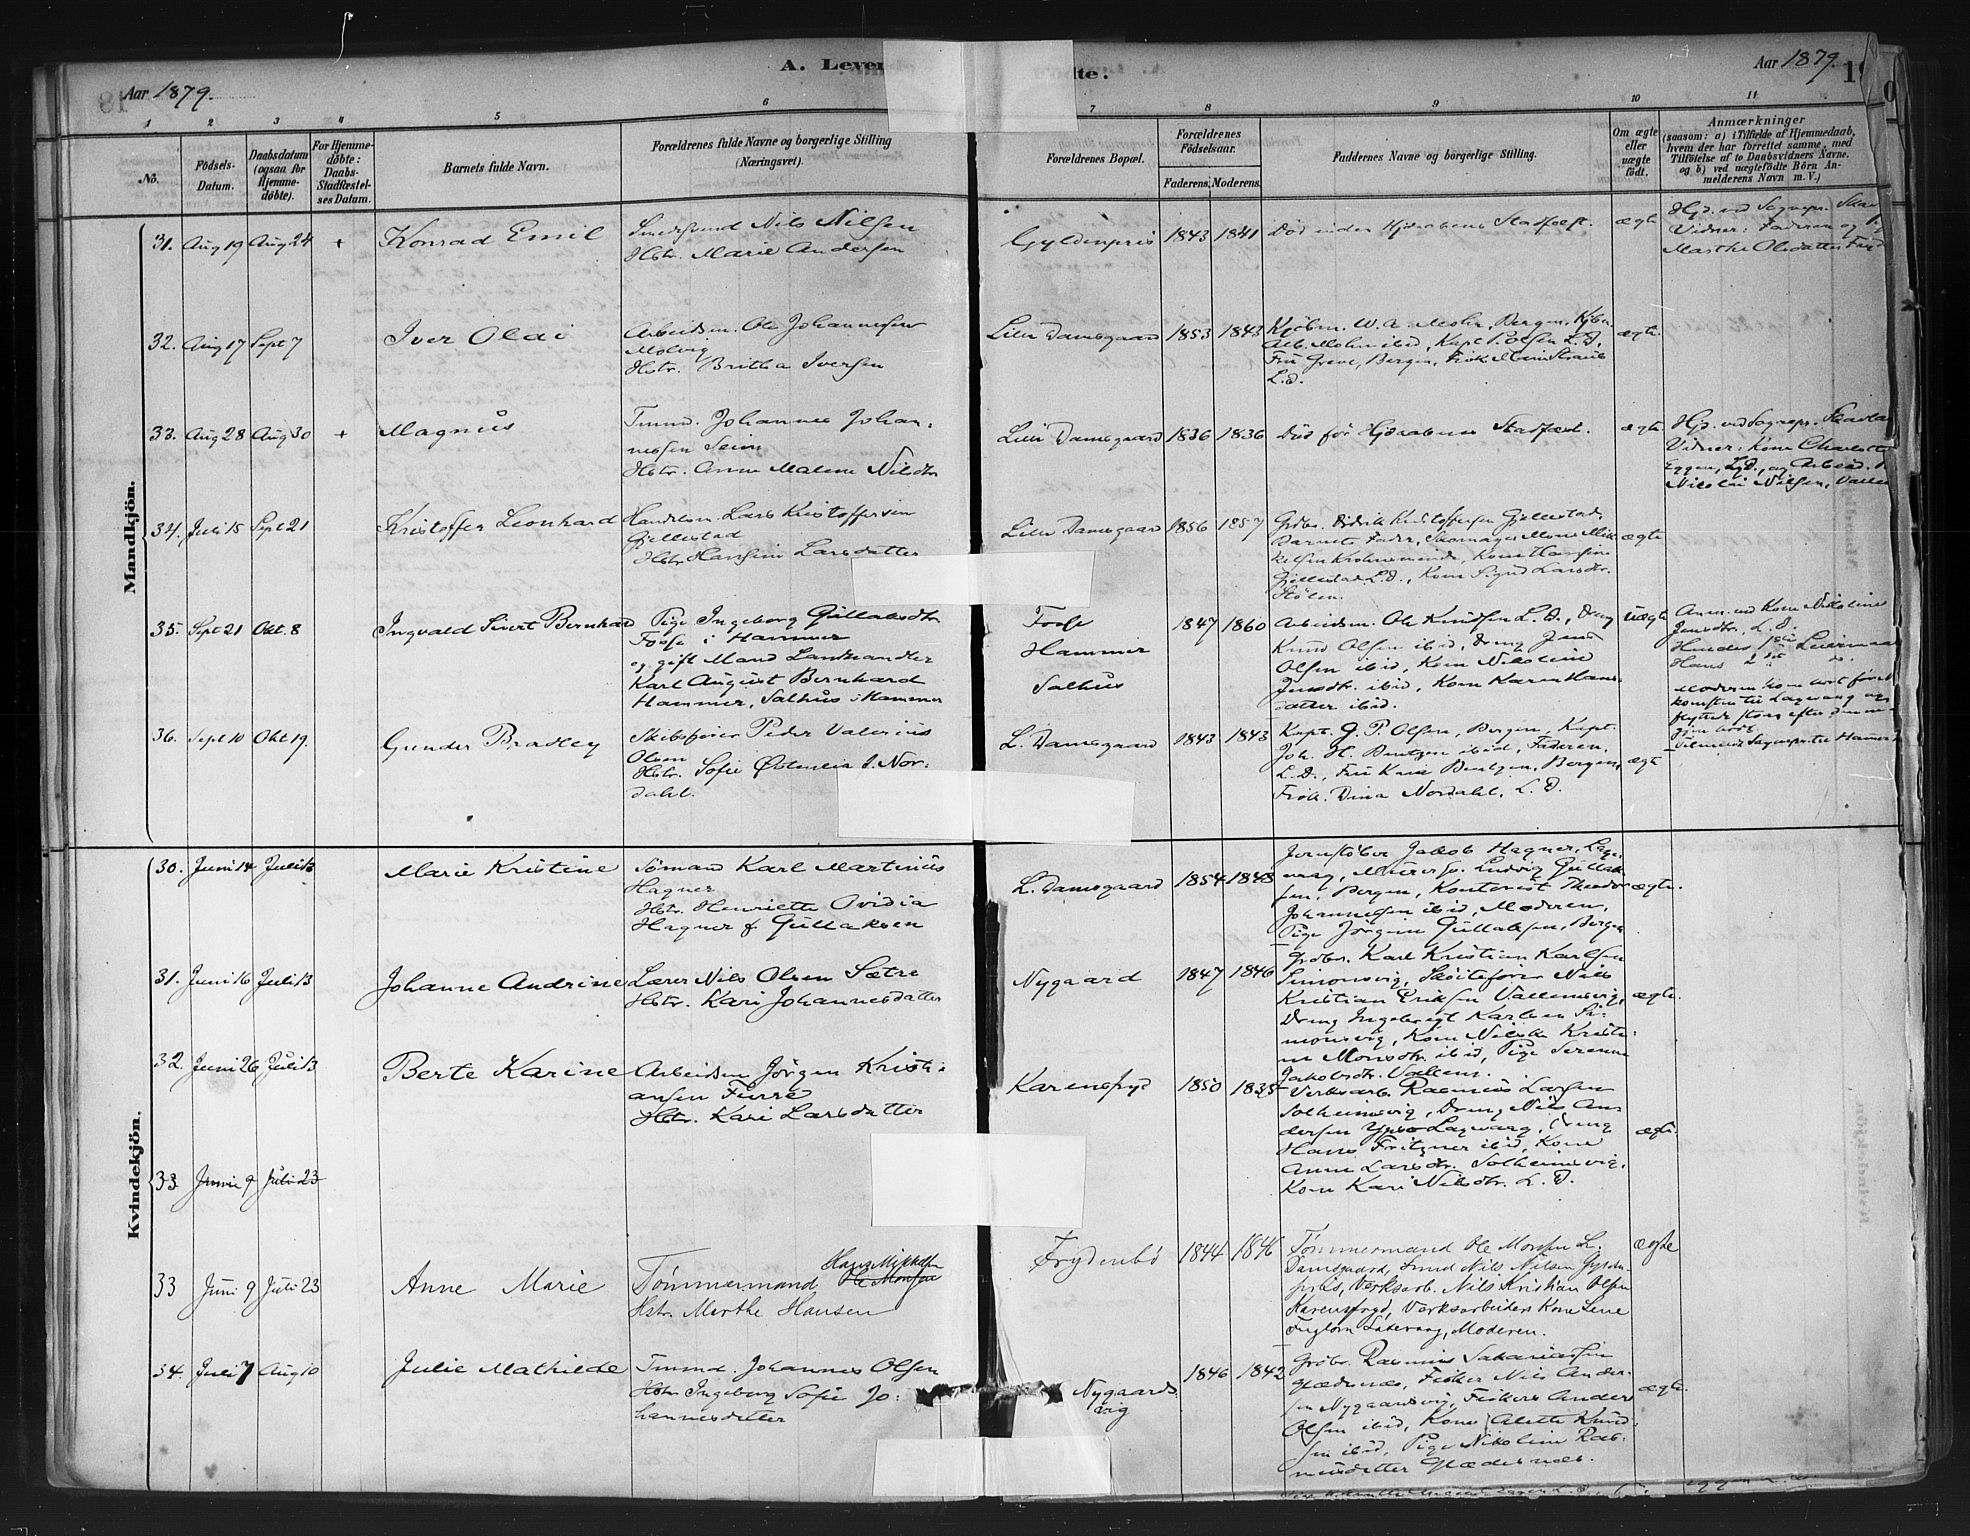 Aar 1879.
A. Lever
dte.
Aar 1879.
19
1 2 3 4 5 6 7 8 9 10 11
No.
Födsels-
Datum.
Daabsdatum
(ogsaa for
Hjemme-
døbte).
For Hjemme-
døbte:
Daabs-
Stadfæstel-
ses Datum.
Barnets fulde Navn.
Forældrenes fulde Navne og borgerlige Stilling
(Næringsvei).
Forældrenes Bopæl.
Forældrenes
Födselsaar.
Faderens. Moderens.
Faddernes Navne og borgerlige Stilling.
Om ægte
eller
uægte
født.
Anmærkninger
(saasom: a) i Tilfælde af Hjemmedaab,
hvem der har forrettet samme, med
Tilföielse af to Daabsvidners Navne,
og b) ved uægtefödte Börn An-
melderens Navn m. V.)
Mandkjön.
31. Aug 19 Aug 24 + Konrad Emil
Nils Nilsen
Hstr. Marie Andersen
Gyldenpris 1843 1841
Död inden Hjdaabens Stadfæst.
ægte
Hjd. ved Sognepr.
Vidner: Faderen og
Marthe Olsdatter
32. Aug 17 Sept 7 Iver Olai
Arbeidsm. Ole Johannesen
Molvig
Hstr. Britha Iversen
Lille Damsgaard 1853 1843
Kjöbm. W. A. Mohr, Bergen, Kjbm.
Alb. Mohn ibid, Kapt. P. Olsen L. D.
Fru Greve, Bergen, Frök. Marie
L. D.
ægte
33. Aug 28 Aug 30 + Magnus
Tmmd. Johannes Johan-
nessen Seim
Hstr. Anne Malene Nilsdtr
Lille Damsgaard 1836 1836
Död før Hjdaabens Stadfæst.
ægte
Hjd. ved Sognepr.
Vidner: Kone Charlotte
Eggen, L. D., og Arbeid.
Nikolai Nilsen,
34. Juli 15 Sept 21 Kristoffer Leonhard
Handelsm. Lars Kristoffersen
Gjellestad
Hstr. Hansine Larsdatter
Lille Damsgaard 1856 1857
Grdbr. Didrik Kristoffersen Gjellestad,
Barnets Fader, Skomager Mons Mik-
kelsen Krohnsminde, Kone Hansine
Gjellestad L. D., Kone Sigrid Larsdtr.
Stölen.
ægte
35. Sept 21 Okt. 8 Ingvald Sivert Bernhard
Pige Ingeborg Gullaksdtr
Fosse i Hammer
og gift Mand Landhandler
Karl August Bernhard
Hammer, Salhus i Hammer
Fosse
Hammer
Salhus
1847 1860
Arbeidsm. Ole Knudsen L. D., Dreng
Knud Olsen ibid, Dreng Jens
Olsen ibid, Kone Nikoline
Jensdtr. ibid, Kone Karen Hans-
datter ibid.
uægte
Anm. ved Kone Nikoline
Jensdtr., L. D.
Hendes 1ste Leiermaal
Hans 2det do.
Moderen kom kort før
komsten til Laxevaag og
flyttede strax efter
igjen bort
36. Sept 10 Okt 19. Gunder Bradley
Skibsfører Peder Valerius
Olsen
Hstr. Sofie Östensia f. Nor-
dahl.
L. Damsgaard 1843 1843
Kapt. G. P. Olsen, Bergen, Kapt.
Joh. H. Bentzen ibid, Faderen,
L. D., Fru Kaia Bentzen, Bergen,
Frök. Dina Nordahl, L. D.
ægte
Kvindekjön.
30. Juni 14 Juli 13 Marie Kristine
Sömand Karl Martinius
Hagner
Hstr. Henriette Ovidia
Hagner f. Gullaksen
L. Damsgaard 1854 1848
Jernstöber Jakob Hagner, Laxe-
vaag, Murersv. Ludvig Gullak-
sen, Bergen, Kontorist Theodor
Johannesen ibid, Moderen,
Pige Jörgine Gullaksen, Bergen
ægte.
31. Juni 16 Juli 13 Johanne Andrine
Lærer Nils Olsen Sætre
Hstr. Kari Johannesdatter
Nygaard 1847 1846
Grdbr. Karl Kristian Karlsen
Simonsvig, Sköitefører Nils
Kristian Eriksen Vallemsvig,
Dreng Ingebrigt Karlsen Si-
monsvig, Kone Nilska Kristi-
ne Monsdtr. ibid, Pige Serenne
Jakobsdtr. Vallem.
ægte.
32. Juni 26 Juli 13 Berte Karine
Arbeidsm. Jörgen Kristi-
ansen Furre
Hstr. Kari Larsdatter
Karensfryd 1850 1835
Verksarb. Rasmus Larsen
Solheimsvig, Dreng Nils An-
dersen Laxevaag, Dreng
Hans Fritzner ibid, Kone
Anne Larsdtr. Solheimsvig,
Kone Kari Nilsdtr. L. D.
ægte.
33 Junie 9 Juli 23
33 Juni 9 Juli 23 Anne Marie
Tömmermand Hans Mikkelsen
Ole Monsen
Hstr. Merthe Hansen
Frydenbö 1844 1846
Tömmermand Ole Monsen L.
Damsgaard, Smed Nils Nilsen Gylden-
pris, Verksarb. Nils Kristian Olsen
Karensfryd, Verksarbeiders Kone Lene
Laxevaag, Moderen.
ægte
34. Juli 7 Aug 10 Julie Mathilde
Tmmd. Johannes Olsen
Hstr. Ingeborg Sofie Jo-
hannesdatter
Nygaards-
vig
1846 1842
Grdbr. Rasmus Sakariassen
Glædesnæs, Fisker Nils Ander-
sen Nygaardsvig, Fiskers Anders
Olsen ibid, Kone Alette Knud-
sen ibid, Pige Nikoline Ras-
musdatter Glædesnæs.
ægte.